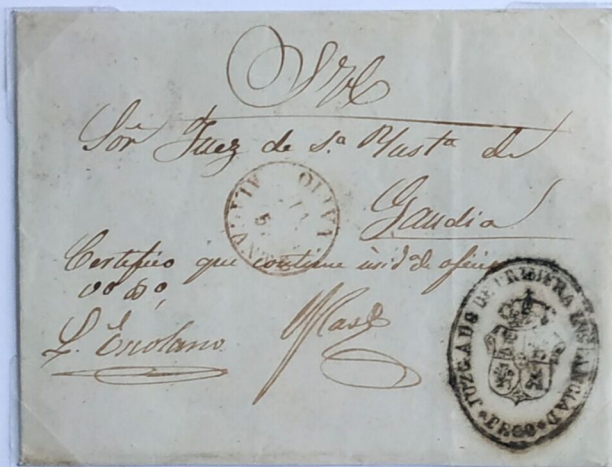 S N C
Sor Juez de 1.a Ynsta de
Gandia
OLIVA
VALENCIA
Certifico que contiene
Vo Bo
L. Escolano
JUZGADO DE PRIMERA INSTANCIA D
PEGO